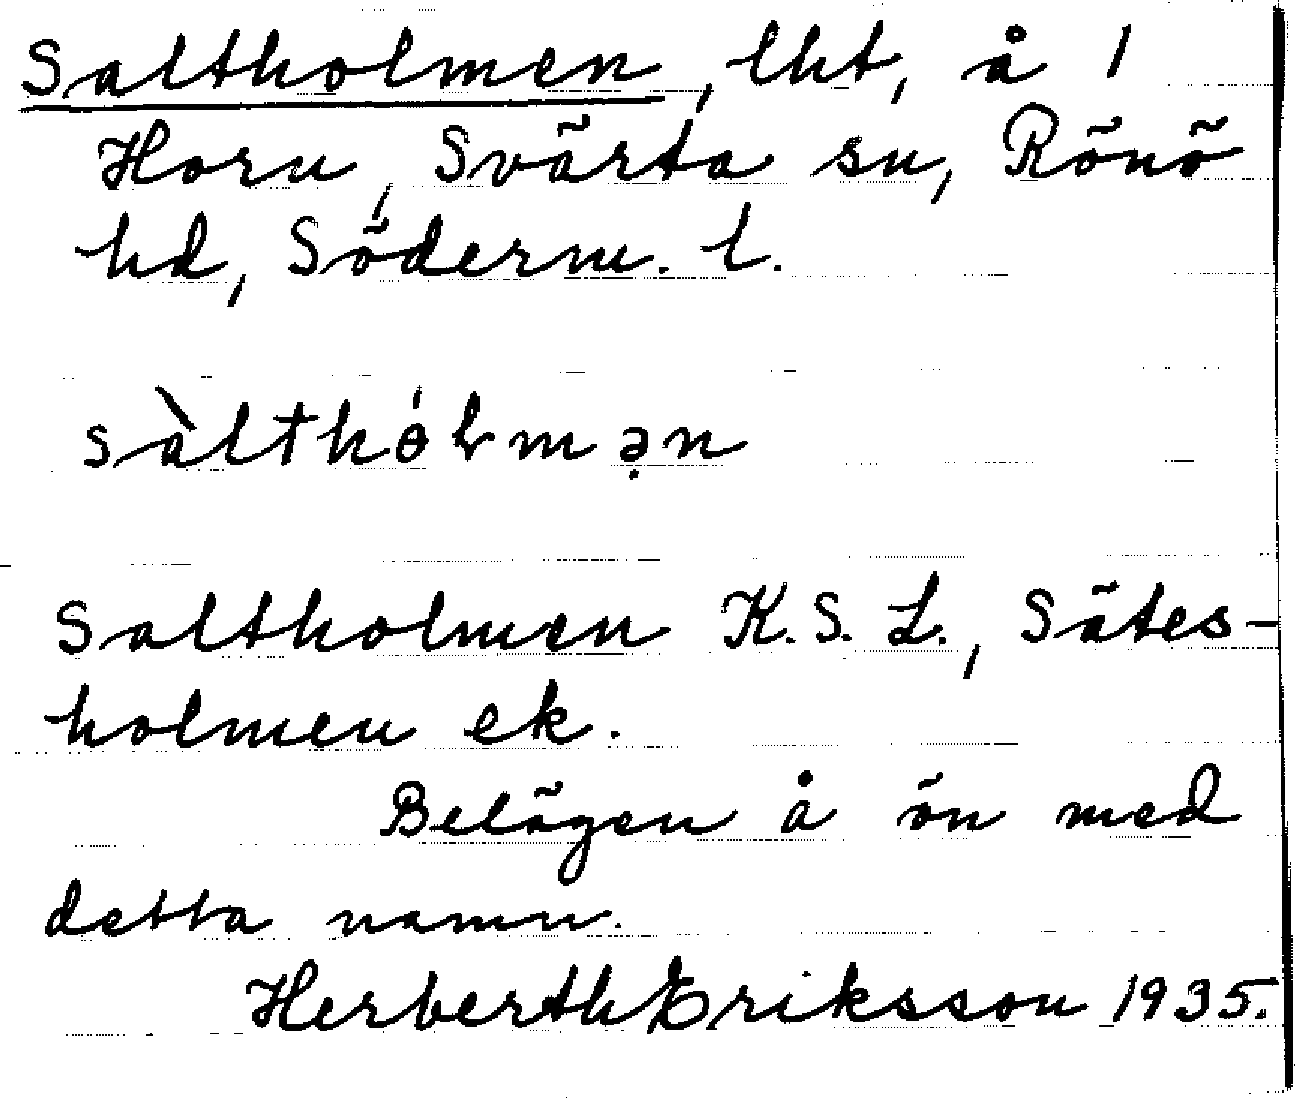 Saltholmen, lht, å 1
Horn, Svärta sn, Rönö
hd, Söderm. l.
sàlthɵ́lmən
Saltholmen K.S.L., Sätes-
holmen ek.
Belägen å ön med
detta namn.
Herberth Eriksson 1935.